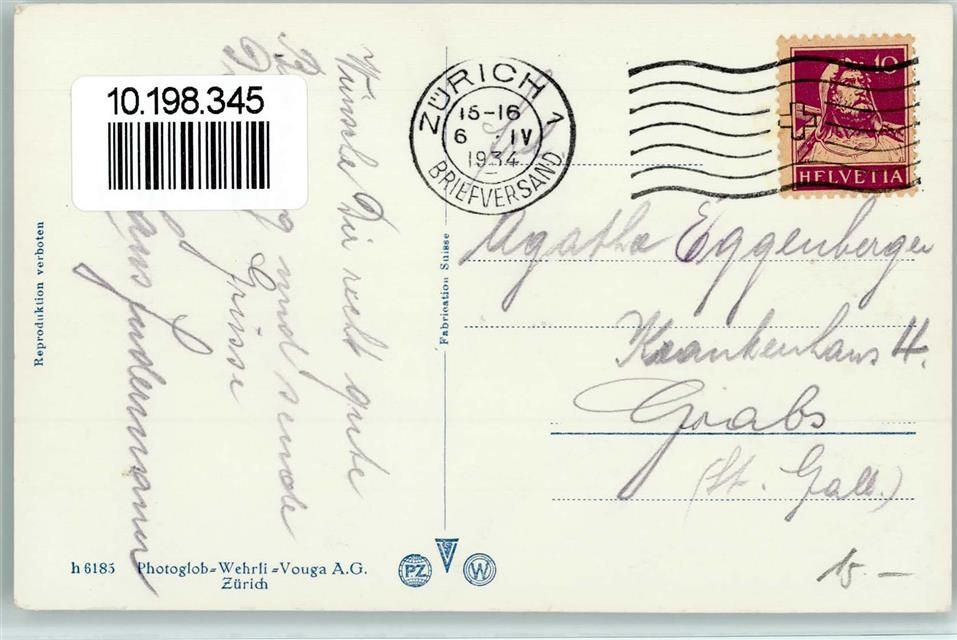 10.198.345
Wünsche Dir recht gute
und sende
Grüsse
Reproduktion verboten
Fabrication Suisse
ZÜRICH 1
15-16
6 . IV
1934
BRIEFVERSAND
10
HELVETIA
Agatha Eggenberger
Krankenhaus
Grabs
(St. Gall.)
h 6185 Photoglob-Wehrli-Vouga A.G.
Zürich
PZ
V
W
15.—